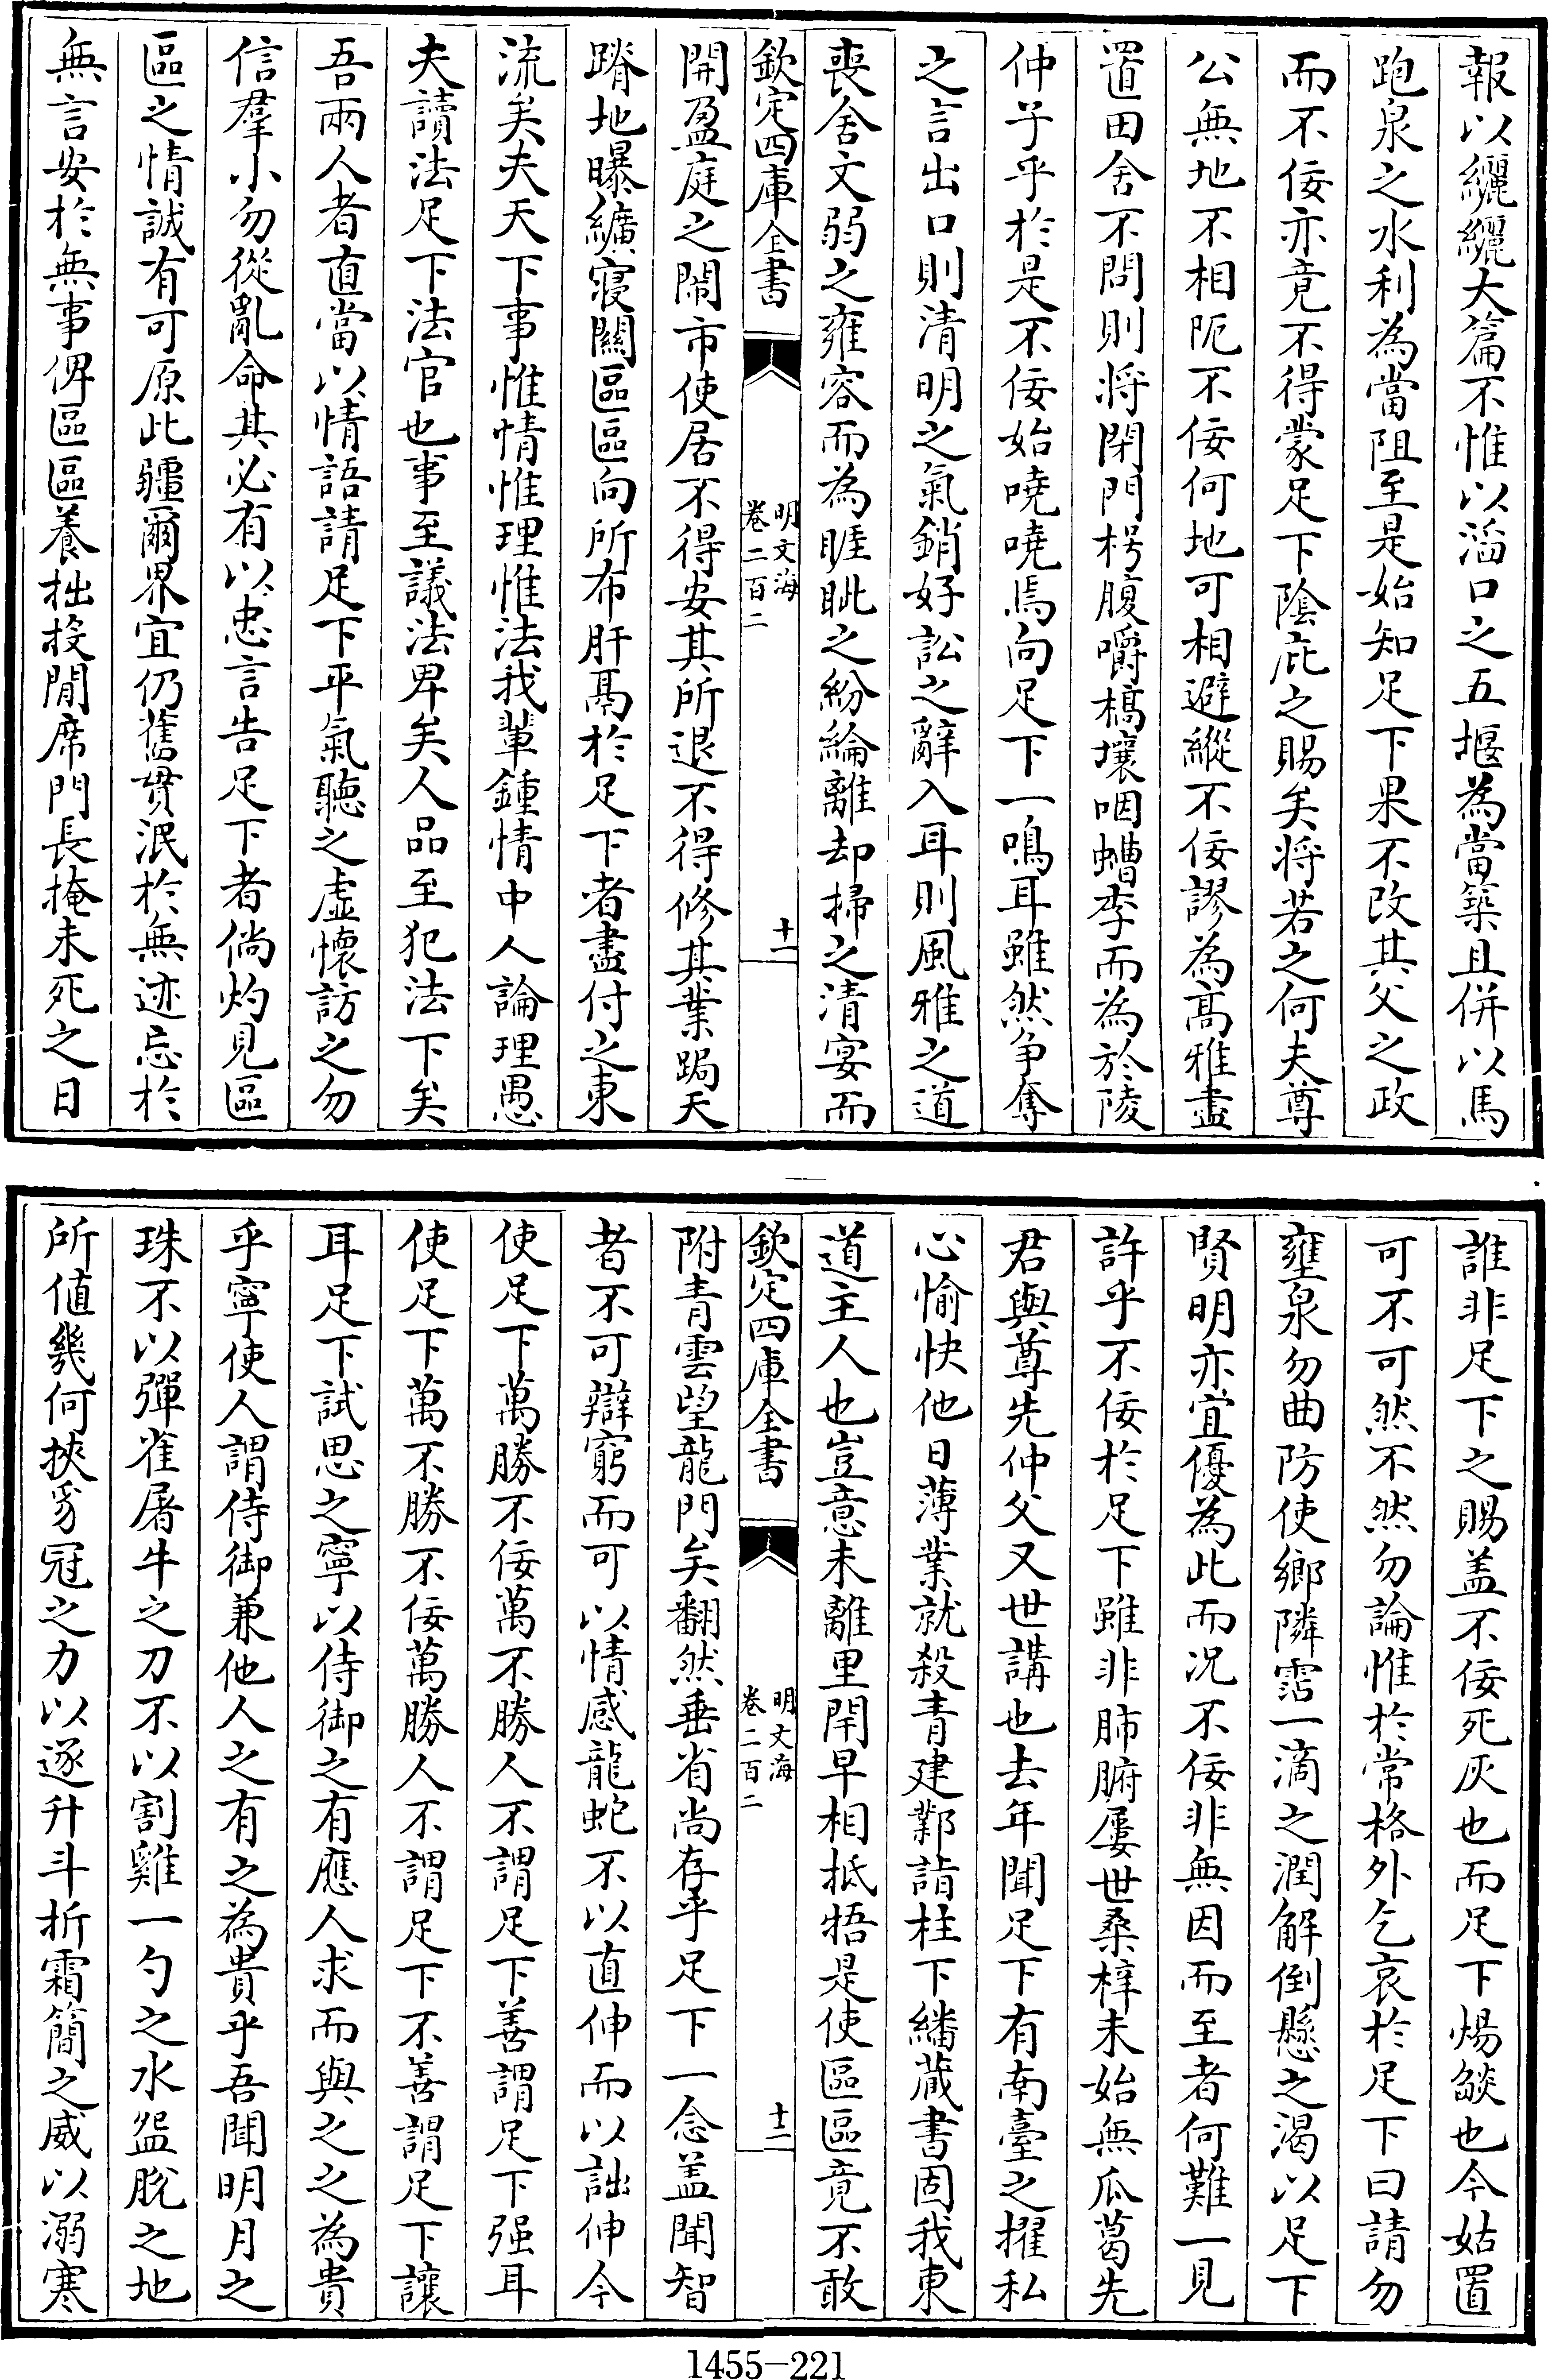 報以纚纚大篇不惟以滔口之五堰為當築且併以馬
跑泉之水利為當阻至是始知足下果不改其父之政
而不佞亦竟不得蒙足下陰庇之賜矣將若之何夫尊
公無地不相阨不佞何地可相避縱不佞謬為高雅盡
置田舍不問則將閉門枵腹嚼槁壤咽螬李而為於陵
仲子乎於是不佞始嘵嘵焉向足下一鳴耳雖然爭奪
之言出口則清明之氣銷好訟之辭入耳則風雅之道
喪舍文弱之雍容而為睚眦之紛綸離却掃之清宴而
欽定四庫全書
明文海
卷二百二
十一
開盈庭之鬧市使居不得安其所退不得修其業跼天
蹐地曝纊寢關區區向所布肝鬲於足下者盡付之東
流矣夫天下事惟情惟理惟法我輩鍾情中人論理愚
夫讀法足下法官也事至議法卑矣人品至犯法下矣
吾兩人者直當以情語請足下平氣聽之虛懷訪之勿
信羣小勿從亂命其必有以忠言告足下者倘灼見區
區之情誠有可原此疆爾界宜仍舊貫泯於無迹忘於
無言安於無事俾區區養拙投閒席門長掩未死之日
誰非足下之賜盖不佞死灰也而足下煬燄也今姑置
可不可然不然勿論惟於常格外乞哀於足下曰請勿
壅泉勿曲防使鄉隣霑一滴之潤解倒懸之渴以足下
賢明亦宜優為此而況不佞非無因而至者何難一見
許乎不佞於足下雖非肺腑屢世桑梓未始無瓜葛先
君與尊先仲父又世講也去年聞足下有南臺之擢私
心愉快他日薄業就殺青建鄴詣柱下繙蔵書固我東
道主人也豈意未離里閈早相抵牾是使區區竟不敢
欽定四庫全書
明文海
卷二百二
十二
附青雲望龍門矣翻然垂省尚存乎足下一念盖聞智
者不可辯窮而可以情感龍蛇不以直伸而以詘伸今
使足下萬勝不佞萬不勝人不謂足下善謂足下强耳
使足下萬不勝不佞萬勝人不謂足下不善謂足下讓
耳足下試思之寧以侍御之有應人求而與之之為貴
乎寧使人謂侍御兼他人之有之為貴乎吾聞明月之
珠不以彈雀屠牛之刀不以割雞一勺之水盌脫之地
所值幾何挾豸冠之力以逐升斗折霜簡之威以溺寒
1455-221